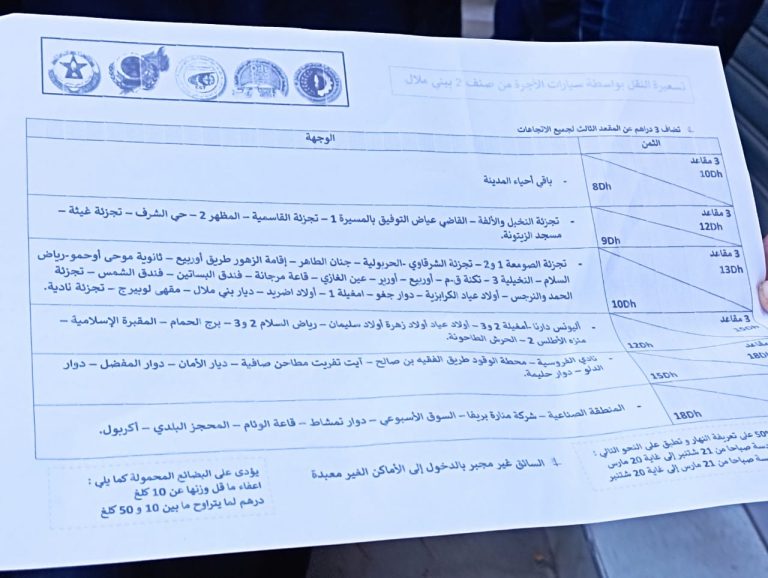 تسعيرة النقل بواسطة سيارات الأجرة من صنف 2 ببني ملال
تضاف 3 دراهم عن المقعد الثالث لجميع الاتجاهات
الثمن
الوجهة
3 مقاعد
10Dh
8Dh
- باقي أحياء المدينة
3 مقاعد
12Dh
9Dh
- تجزئة النخيل والألفة – القاضي عياض التوفيق بالمسيرة 1 – تجزئة القاسمية – المظهر 2 – حي الشرف – تجزئة غيثة –
مسجد الزيتونة.
3 مقاعد
13Dh
10Dh
- تجزئة الصومعة 1 و2 – تجزئة الشرقاوي -الحربولية – جنان الطاهر – إقامة الزهور طريق أوربيع – ثانوية موحى أوحمو-رياض
السلام – النخيلية 3 – ثكنة ق.م – أوربيع – أوربر – عين الغازي – قاعة مرجانة – فندق البساتين – فندق الشمس – تجزئة
الحمد والنرجس – أولاد عياد الكرابزية – دوار جغو – امغيلة 1 – أولاد اضريد – ديار بني ملال – مقهى لوبيرج – تجزئة نادية.
3 مقاعد
15Dh
12Dh
- أليونس دارنا -أمغيلة 2 و3 – أولاد عياد أولاد زهرة أولاد سليمان – رياض السلام 2 و3 – برج الحمام – المقبرة الإسلامية –
منزه الأطلس 2 – الحرش الطاحونة.
مقاعد
18Dh
15Dh
- نادي الفروسية – محطة الوقود طريق الفقيه بن صالح – آيت تفريت مطاحن صافية – ديار الأمان – دوار المفضل – دوار
الدلو – دوار حليمة.
18Dh
- المنطقة الصناعية – شركة منارة بريفا – السوق الأسبوعي – دوار تمشاط – قاعة الوئام – المحجز البلدي – أكربول.
50% على تعريفة النهار و تطبق على النحو التالي :
صباحا من 21 شتنبر إلى غاية 20 مارس
صباحا من 21 مارس إلى غاية 20 شتنبر
السائق غير مجبر بالدخول إلى الأماكن الغير معبدة
يؤدى على البضائع المحمولة كما يلي :
اعفاء ما قل وزنها عن 10 كلغ
درهم لما يتراوح ما بين 10 و 50 كلغ